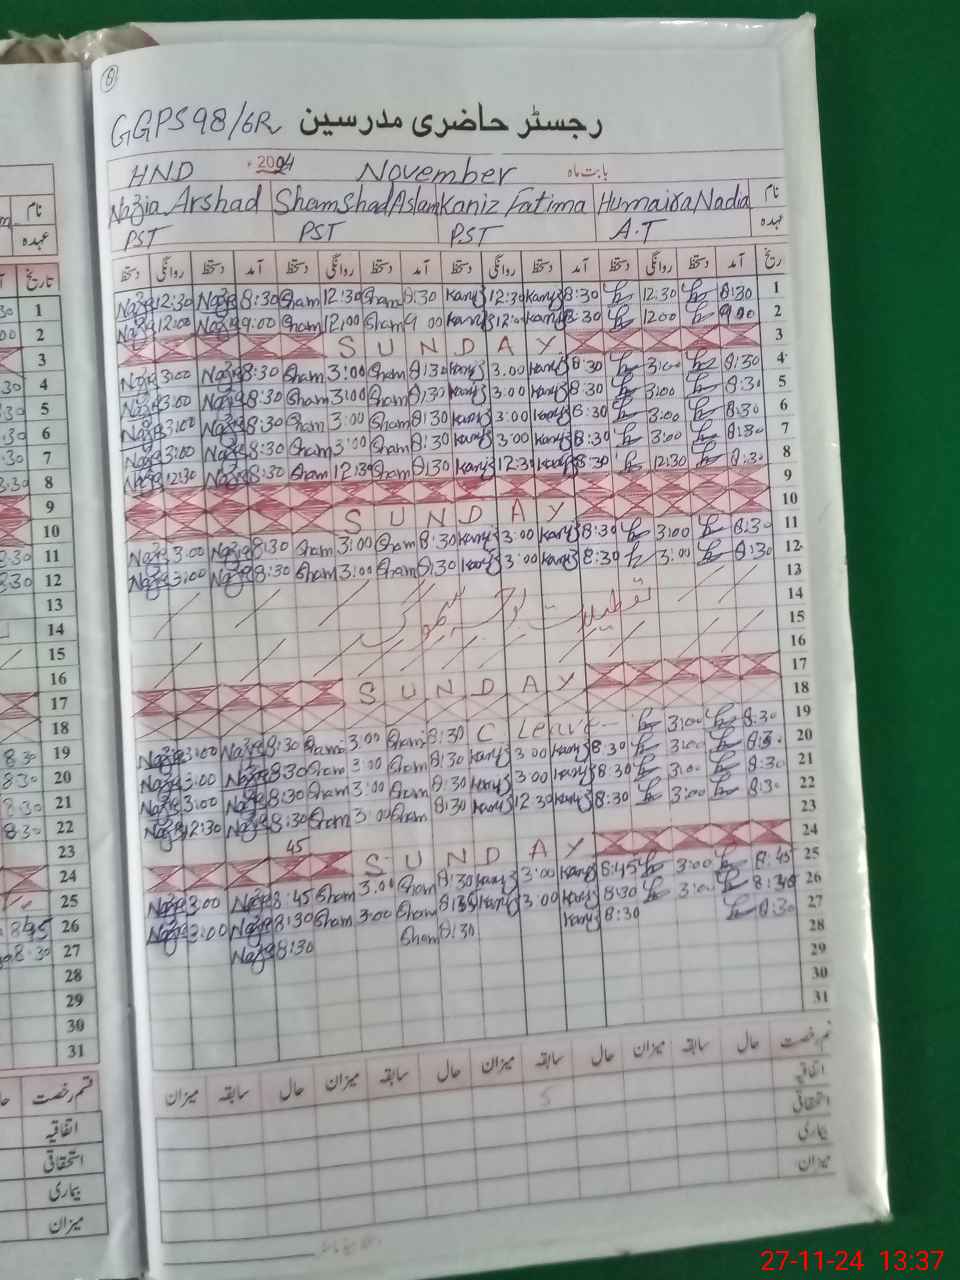 8
GGPS 98/6R رجسٹر حاضری مدرسین
HND 2024 November بابت ماہ
Nazia Arshad Shamshad Aslam Kaniz Fatima Humaira Nadia نام
PST PST PST A.T عہدہ
دستخط روانگی دستخط آمد دستخط روانگی دستخط آمد دستخط روانگی دستخط آمد دستخط روانگی دستخط آمد تاریخ
Nazia 12:30 Nazia 8:30 Sham 12:30 Sham 8:30 Kaniz 12:30 Kaniz 8:30 12:30 8:30 1
Nazia 12:00 Nazia 9:00 Sham 12:00 Sham 9 00 Kaniz 12:00 Kaniz 8:30 12:00 9:00 2
SUNDAY 3
Nazia 3:00 Nazia 8:30 Sham 3:00 Sham 8:30 Kaniz 3:00 Kaniz 8:30 3:00 8:30 4
Nazia 3:00 Nazia 8:30 Sham 3:00 Sham 8:30 Kaniz 3:00 Kaniz 8:30 3:00 8:30 5
Nazia 3:00 Nazia 8:30 Sham 3:00 Sham 8:30 Kaniz 3:00 Kaniz 8:30 3:00 8:30 6
Nazia 3:00 Nazia 8:30 Sham 3:00 Sham 8:30 Kaniz 3:00 Kaniz 8:30 3:00 8:30 7
Nazia 12:30 Nazia 8:30 Sham 12:30 Sham 8:30 Kaniz 12:30 Kaniz 8:30 12:30 8:30 8
9
SUNDAY 10
Nazia 3:00 Nazia 8:30 Sham 3:00 Sham 8:30 Kaniz 3:00 Kaniz 8:30 3:00 8:30 11
Nazia 3:00 Nazia 8:30 Sham 3:00 Sham 8:30 Kaniz 3:00 Kaniz 8:30 3:00 8:30 12
13
تعطیلات بوجہ سموگ 14
15
16
SUNDAY 17
18
Nazia 3:00 Nazia 8:30 Sham 3:00 Sham 8:30 C Leave 3:00 8:30 19
Nazia 3:00 Nazia 8:30 Sham 3:00 Sham 8:30 Kaniz 3:00 Kaniz 8:30 3:00 8:30 20
Nazia 3:00 Nazia 8:30 Sham 3:00 Sham 8:30 Kaniz 3:00 Kaniz 8:30 3:00 8:30 21
Nazia 12:30 Nazia 8:30 Sham 3:00 Sham 8:30 Kaniz 12:30 Kaniz 8:30 3:00 8:30 22
23
45 SUNDAY 24
Nazia 3:00 Nazia 8:45 Sham 3:00 Sham 8:30 Kaniz 3:00 Kaniz 8:45 3:00 8:45 25
Nazia 3:00 Nazia 8:30 Sham 3:00 Sham 8:30 Kaniz 3:00 Kaniz 8:30 3:00 8:30 26
Nazia 8:30 Sham 8:30 Kaniz 8:30 8:30 27
28
29
30
31
میزان سابقہ حال میزان سابقہ حال میزان سابقہ حال میزان سابقہ حال قسم رخصت
اتفاقیہ
استحقاقی
بیماری
میزان
نام
عہدہ
تاریخ
1
2
3
30 4
30 5
30 6
30 7
8:30 8
9
10
8:30 11
8:30 12
13
14
15
16
17
18
8:30 19
8:30 20
8:30 21
8:30 22
23
24
25
8:45 26
8:30 27
28
29
30
31
قسم رخصت
اتفاقیہ
استحقاقی
بیماری
میزان
27-11-24 13:37